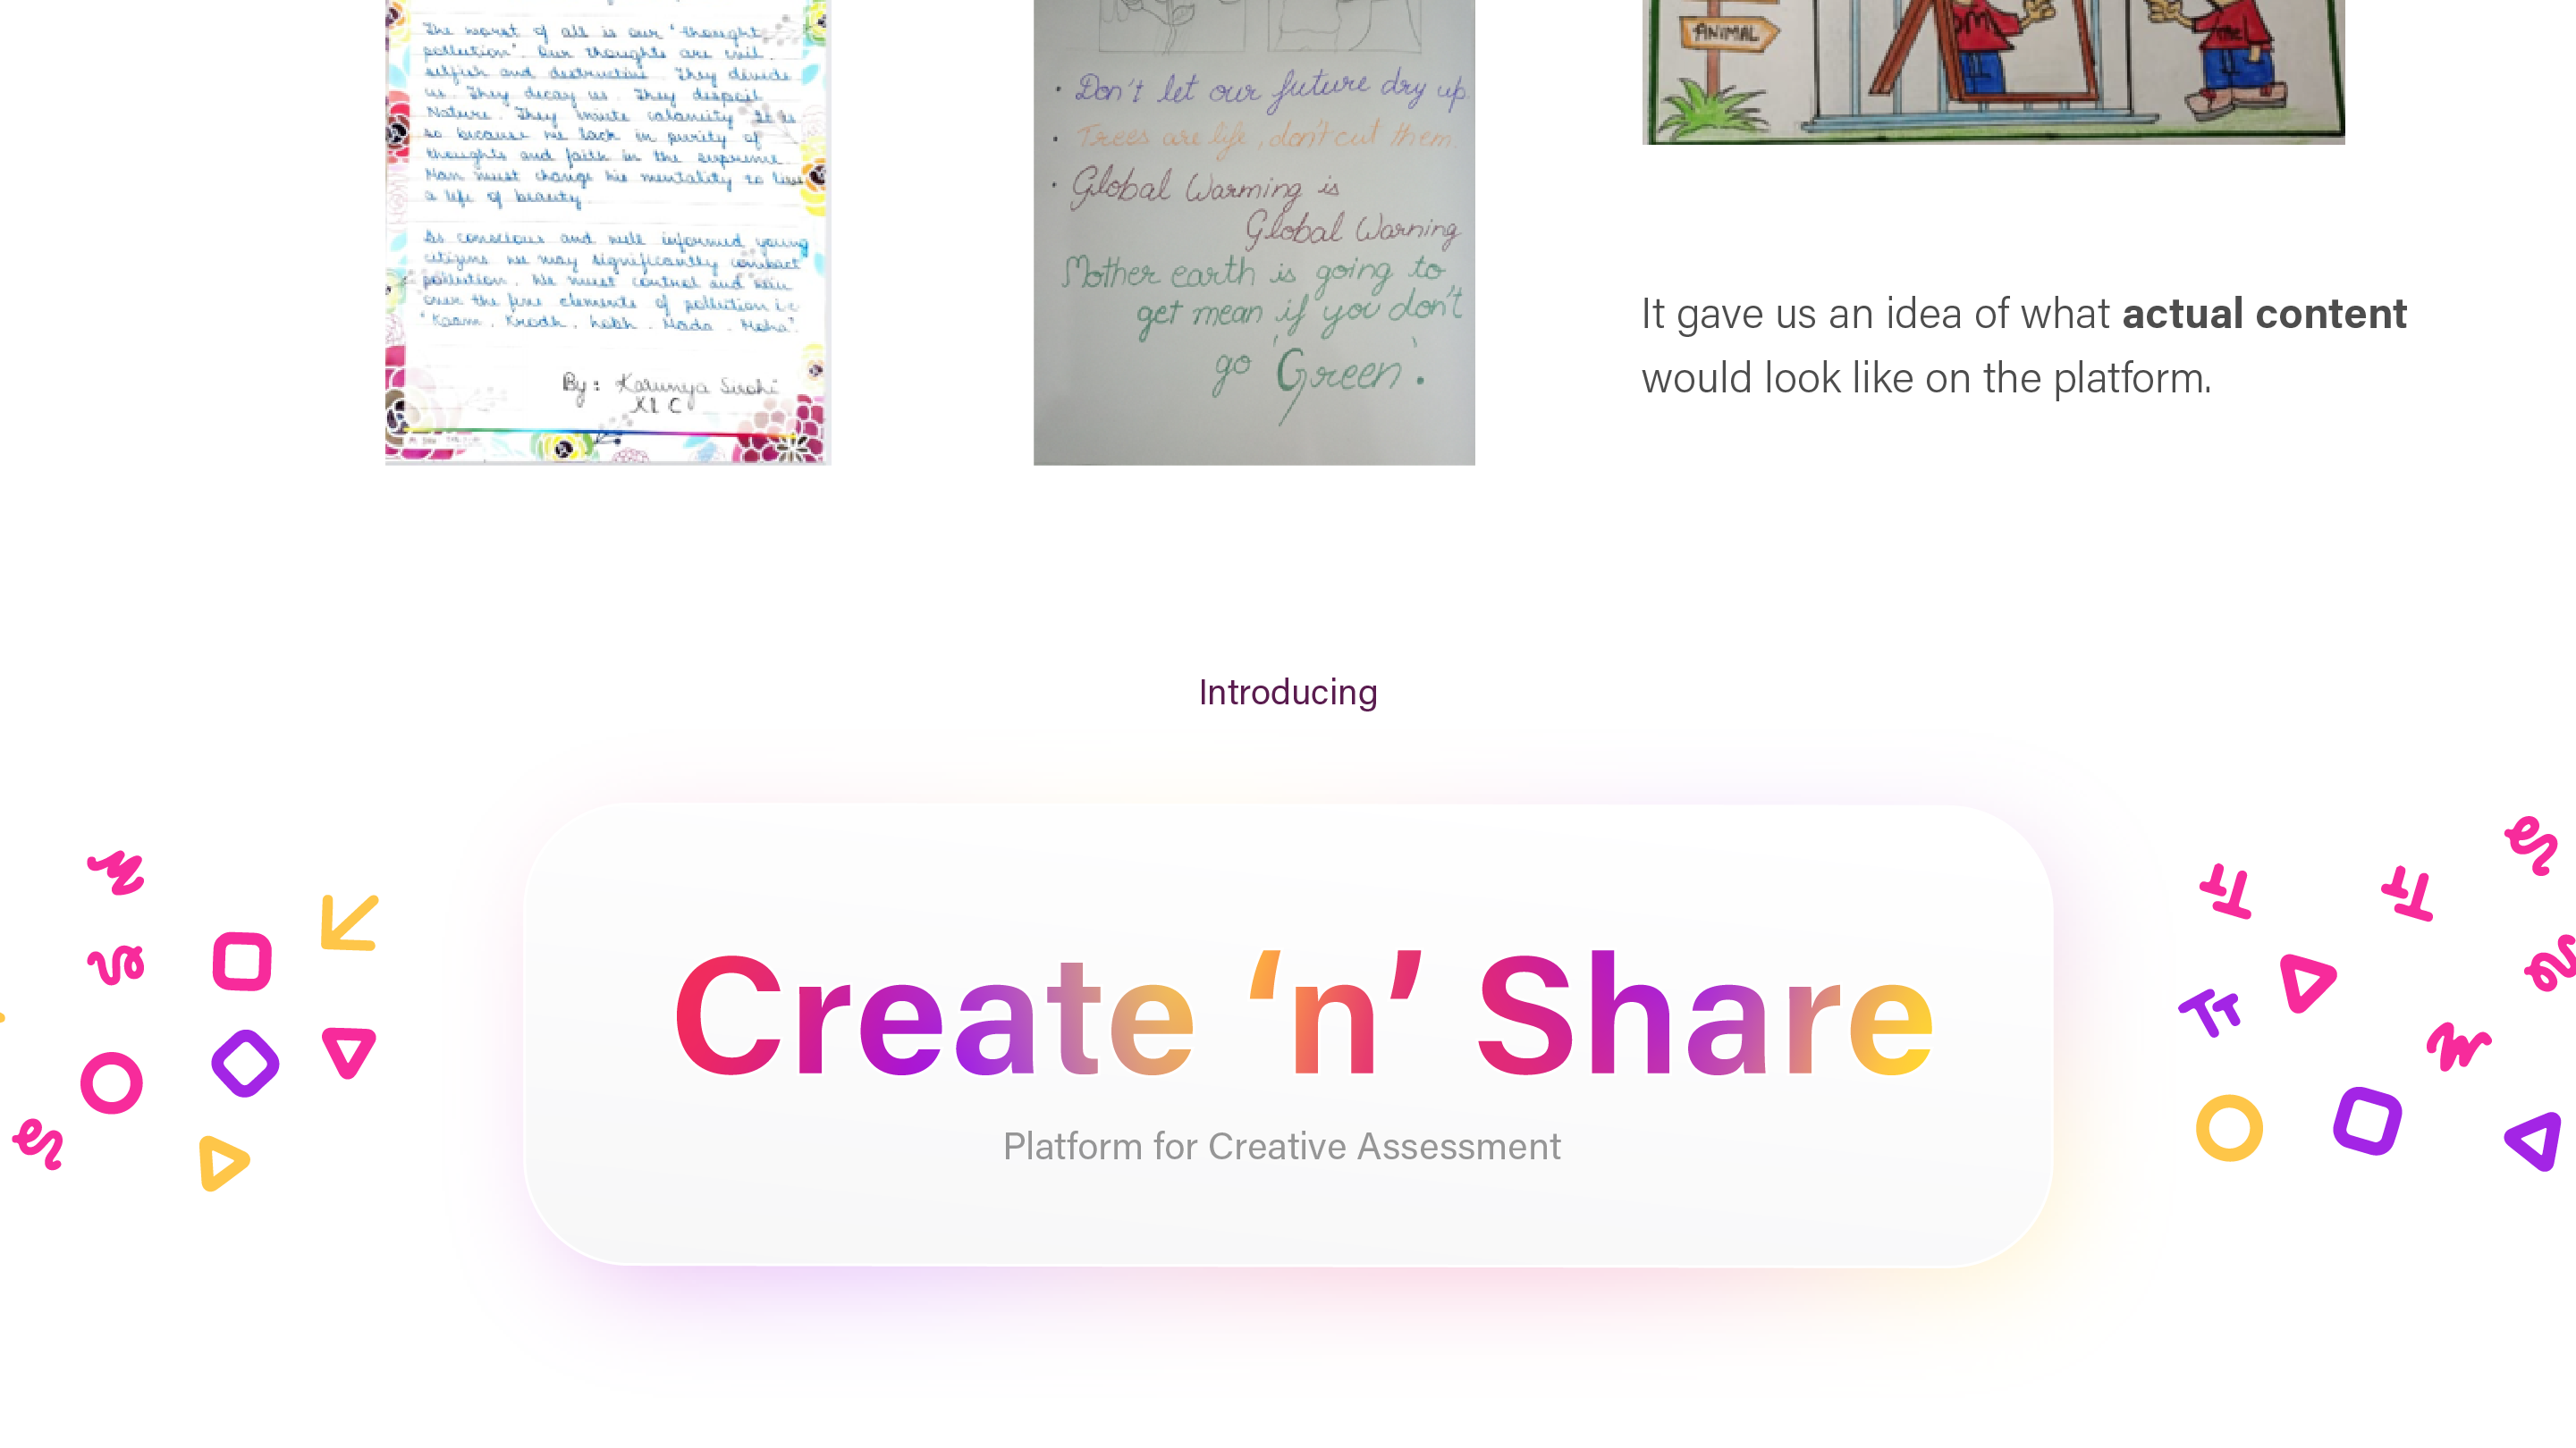 The worst of all is our 'thought
pollution'. Our thoughts are evil
selfish and destructive. They divide
us. They decay us. They despoil
Nature. They invite calamity It is
so because we lack in purity of
thoughts and faith in the supreme
Man must change his mentality to live
a life of beauty
As conscious and well informed young
citizens we may significantly combact
pollution. We must control and win
over the five elements of pollution i.e
"Kaam, Krodh, Lobh, Mada, Moha".
By: Karunya Sirohi
XI C
• Don't let our future dry up.
• Trees are life, don't cut them.
• Global Warming is
Global Warning
Mother earth is going to
get mean if you don't
go 'Green'.
ANIMAL
It gave us an idea of what actual content
would look like on the platform.
Introducing
Create ‘n’ Share
Platform for Creative Assessment